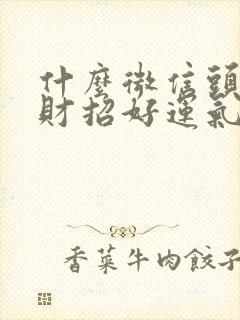 什麼微信頭
財招好運氣
香菜牛肉餃子